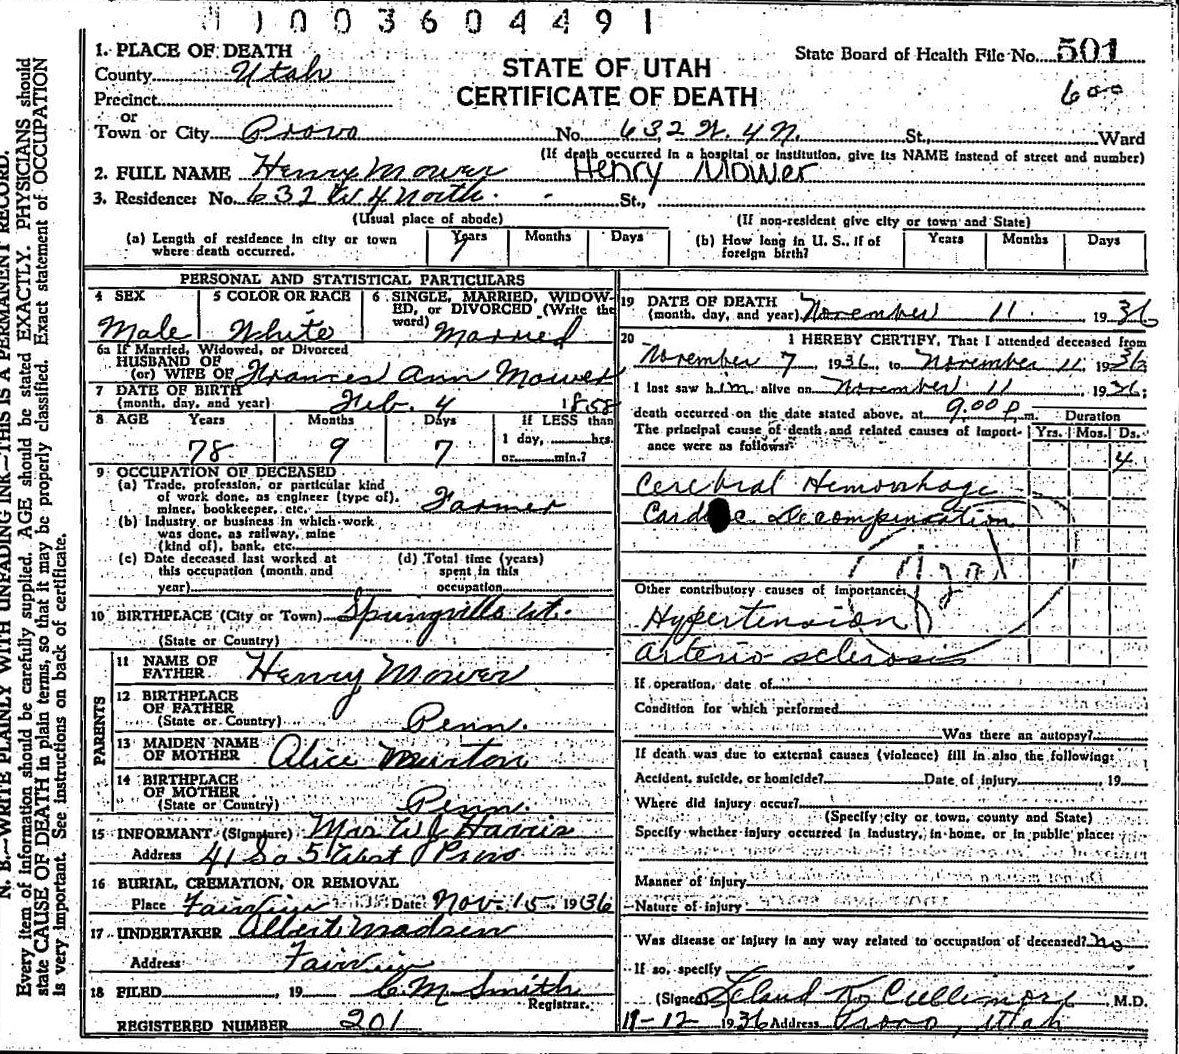 1003604491
1. PLACE OF DEATH
County Utah
STATE OF UTAH
State Board of Health File No. 501
Precinct
CERTIFICATE OF DEATH
600
or
Town or City Provo No. 632 W. 4 N. St., Ward
(If death occurred in a hospital or institution, give its NAME instead of street and number)
2. FULL NAME Henry Mower Henry Mower
3. Residence: No. 632 W 4 North. St.,
(Usual place of abode) (If non-resident give city or town and State)
(a) Length of residence in city or town where death occurred. Years 7 Months Days
(b) How long in U. S., if of foreign birth? Years Months Days
PERSONAL AND STATISTICAL PARTICULARS
4 SEX Male
5 COLOR OR RACE White
6 SINGLE, MARRIED, WIDOWED, or DIVORCED (Write the word) Married
6a If Married, Widowed, or Divorced
HUSBAND OF
(or) WIFE OF Frances Ann Mower
7 DATE OF BIRTH
(month, day, and year) Feb. 4 1858
8 AGE Years Months Days If LESS than
78 9 7
1 day, hrs.
or min.?
9 OCCUPATION OF DECEASED
(a) Trade, profession, or particular kind
of work done, as engineer (type of),
miner, bookkeeper, etc. Farmer
(b) Industry or business in which work
was done, as railway, mine
(kind of), bank, etc.
(c) Date deceased last worked at
this occupation (month and
year)
(d) Total time (years)
spent in this
occupation
10 BIRTHPLACE (City or Town) Springville Ut.
(State or Country)
PARENTS
11 NAME OF
FATHER Henry Mower
12 BIRTHPLACE
OF FATHER
(State or Country) Penn.
13 MAIDEN NAME
OF MOTHER Alice
14 BIRTHPLACE
OF MOTHER
(State or Country) Penn.
15 INFORMANT (Signature) Mrs W J Harris
Address 41 So 5 West Provo
16 BURIAL, CREMATION, OR REMOVAL
Place Fairview Date Nov. 15 1936
17 UNDERTAKER Albert Madsen
Address Fairview
18 FILED , 19 C M Smith
Registrar.
REGISTERED NUMBER 201
19 DATE OF DEATH
(month, day, and year) November 11 1936
20 I HEREBY CERTIFY, That I attended deceased from
November 7 1936 to November 11, 1936
I last saw him alive on November 11 1936;
death occurred on the date stated above, at 9:00 p. m. Duration
The principal cause of death and related causes of import-
ance were as follows: Yrs. Mos. Ds.
4
Cerebral Hemorrhage
Cardiac Decompensation
Other contributory causes of importance:
Hypertension
Arterio sclerosis
If operation, date of
Condition for which performed
Was there an autopsy?
If death was due to external causes (violence) fill in also the following:
Accident, suicide, or homicide? Date of injury , 19
Where did injury occur?
(Specify city or town, county and State)
Specify whether injury occurred in industry, in home, or in public place:
Manner of injury
Nature of injury
Was disease or injury in any way related to occupation of deceased? no
If so, specify
(Signed) Leland K. Cullimore, M.D.
11-12 1936 Address Provo, Utah
N. B.—WRITE PLAINLY WITH UNFADING INK—THIS IS A PERMANENT RECORD.
Every item of information should be carefully supplied. AGE should be stated EXACTLY. PHYSICIANS should
state CAUSE OF DEATH in plain terms, so that it may be properly classified. Exact statement of OCCUPATION
is very important. See instructions on back of certificate.